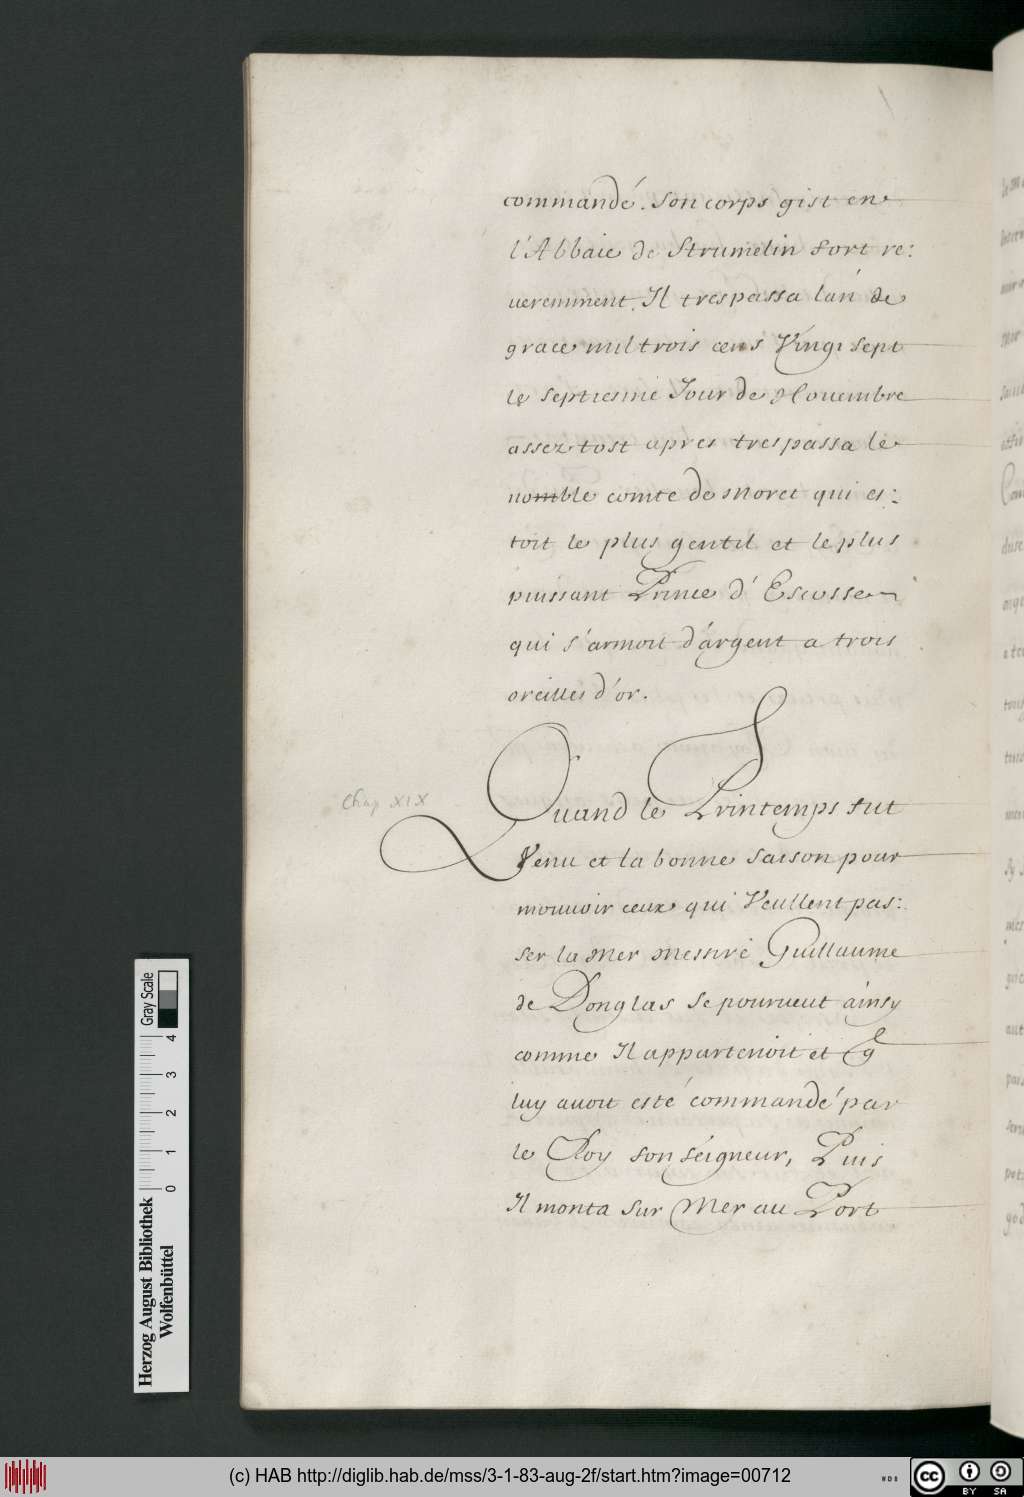 commandé. Son corps gist en
l'Abbaie de Strumelin fort re:
ueremment. Il trespassa lan de
grace mil trois cens Vingt sept
le septiesme Jour de Nouembre
assez tost apres trespassa le
nomble comte de Moret qui es:
toit le plus gentil et le plus
puissant Prince d'Escosse
qui s'armoit d'argent a trois
oreilles d'or.
Chap XIX
Quand le Printemps fut
Venu et la bonne saison pour
mouuoir ceux qui Veullent pas:
ser la Mer Messire Guillaume
de Donglas se pourueut ainsy
comme Il appartenoit et q
luy auoit esté commandé par
le Roy son seigneur, Puis
Il monta sur Mer au Port
Herzog August Bibliothek
Wolfenbüttel
0 1 2 3 4
Gray Scale
(c) HAB http://diglib.hab.de/mss/3-1-83-aug-2f/start.htm?image=00712
WDB
cc BY SA